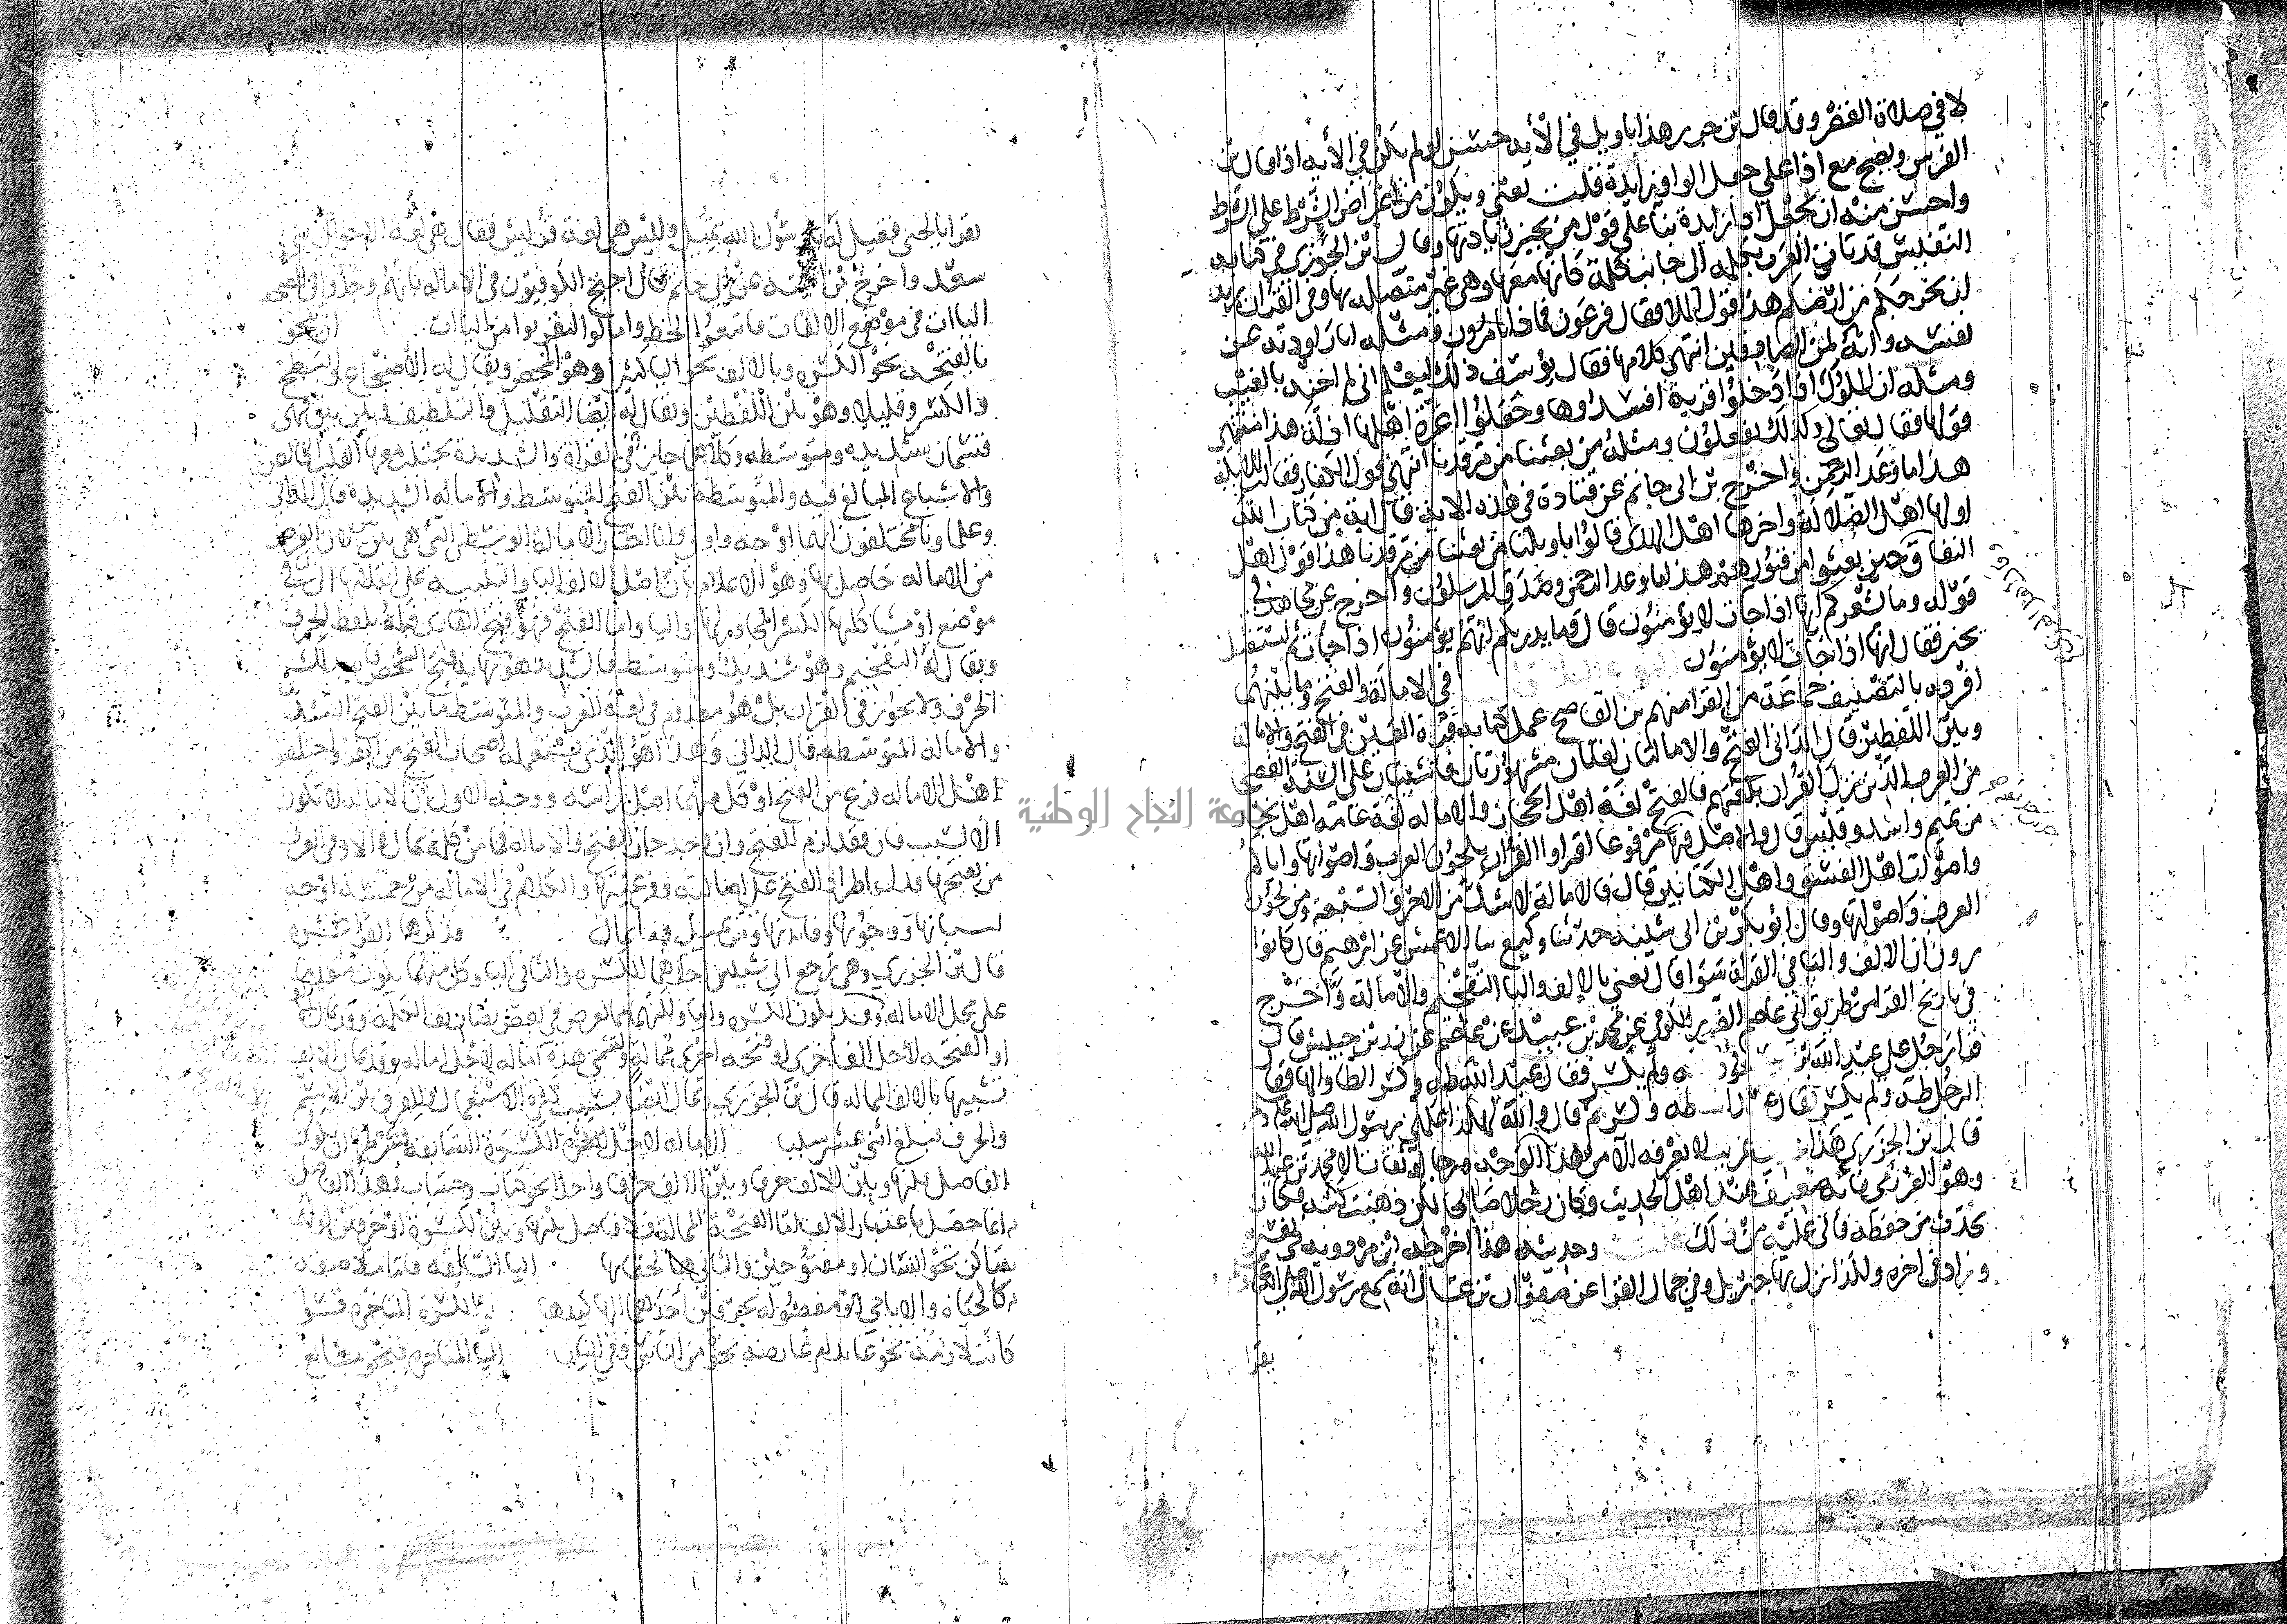 لا في صلاة القصر وقد قال بن جرير هذا تاويل في الأية حسن لو لم يكن في الأية اذا قال بن
الفرس ويصح مع اذا على جعل الواو زايدة قلت يعني ويكون من اعتراض الشرط على الشرط
واحسن منه ان تجعل اذا زايدة بنآ على قول من يجيز زيادتها وقال بن الجوزي في كتابه
النفيس قد تاتي العرب بكلمة الى جانب كلمة كانها معها وهي غير متصلة بها وفي القران يريد
ان يخرجكم من ارضكم هذا قول الملا فقال فرعون فماذا تامرون ومثله انا راودته عن
نفسه وانه لمن الصادقين انتهى كلامها فقال يوسف ذلك ليعلم اني لم اخنه بالغيب
ومثله ان الملوك اذا دخلوا قرية افسدوها وجعلوا اعزة اهلها اذلة هذا منتهى
قولها فقال تعالى وكذلك يفعلون ومثله من بعثنا من مرقدنا انتهى قول الكفار فقالت الملايكة
هذا ما وعد الرحمن واخرج بن ابي حاتم عن قتادة في هذه الاية قال اية من كتاب الله
اولها اهل الضلالة واخرها اهل الهدى قالوا ياويلنا من بعثنا من مرقدنا هذا قول اهل
النفاق حين بعثوا من قبورهم هذا ما وعد الرحمن وصدق المرسلون واخرج عن مجاهد في
قوله وما يشعركم انها اذا جات لا يؤمنون قال وما يدريكم انهم يؤمنون اذا جات ثم استقبل
يخبر فقال انها اذا جات لا يؤمنون
في الامالة والفتح وما بينهما
افرده بالتصنيف جماعة من القرا منهم بن القاصح عمل كتابه قرة العين في الفتح والامالة
وبين اللفظين قال الداني الفتح والامالة لغتان مشهورتان فاشيتان على السنة الفصحا
من العرب الذين نزل القران بلغتهم فالفتح لغة اهل الحجاز والامالة لغة عامة اهل نجد
من تميم واسد وقيس قال والاصل فيها مرفوعا اقراوا القران بلحون العرب واصواتها واياكم
واصوات اهل الفسق واهل الكتابين قال فالامالة لا شك من الاحرف السبعة ومن لحون
العرب واصواتها وقال ابو بكر بن ابي شيبة حدثنا وكيع نا الاعمش عن ابرهيم قال كانوا
يرون ان الالف واليا في القراة سوا قال يعني بالالف واليا التفخيم والامالة واخرج
في تاريخ القرا من طريق ابي عاصم الضرير الكوفي عن محمد بن عبيد عن عاصم عن زر بن حبيش قال
قرا رجل على عبد الله بن ولم يكسر فقال عبد الله طه وكسر الطا والها فقال
الرجل طه ولم يكسر فقال طه وكسر ثم قال والله لهكذا علمني رسول الله صلى الله عليه
قال بن الجزري هذا غريب لا نعرفه الا من هذا الوجه ورجاله ثقات الا محمد بن عبيد الله
وهو العرزمي فانه ضعيف عند اهل الحديث وكان رجلا صالحا لكن ذهبت كتبه فكان
يحدث من حفظه فاتى عليه من ذلك وحديثه هذا اخرجه ابن مردويه في تفسيره
وزاد في اخره وكذا نزل بها جبريل وفي جمال القرا عن صفوان بن عسال انه سمع رسول الله صلى الله عليه
يقرا
يقرا يايحيى فقيل له يا رسول الله تميل وليس هي لغة قريش فقال هي لغة الاخوال بني
سعد واخرج بن عن ابي حاتم قال احتج الكوفيون في الامالة بانهم وجدوا في المصحف
الياات في موضع الالفات فاتبعوا الخط وامالوا ليقربوا من الياات ان ينحو
بالفتحة نحو الكسرة وبالالف نحو اليا كثيرا وهو المحض ويقال له الاضجاع والبطح
والكسر وقليلا وهو بين اللفظين ويقال له ايضا التقليل والتلطيف وبين بين فهي
قسمان شديدة ومتوسطة وكلاهما جايز في القراة والشديدة يجتنب معها القلب الخالص
والاشباع المبالغ فيه والمتوسطة بين الفتح المتوسط والامالة الشديدة قال الداني
وعلماونا مختلفون ايهما اوجه واولى وانا اختار الامالة الوسطى التي هي بين بين لان الغرض
من الامالة حاصل بها وهو الاعلام بان اصل الالف اليا والتنبيه على انقلابها الى اليا في
موضع او مشاكلتها للكسر المجاور لها او اليا واما الفتح فهو فتح القارى فاه بلفظ الحرف
ويقال له التفخيم وهو شديد ومتوسط فالشديد هو نهاية فتح الشخص فاه بذلك
الحرف ولا يجوز في القران بل هو معدوم في لغة العرب والمتوسط ما بين الفتح الشديد
والامالة المتوسطة قال الداني وهذا هو الذي يستعمله اصحاب الفتح من القرا واختلفوا
هل الامالة فرع من الفتح او كل منهما اصل براسه ووجه الاول ان الامالة لا تكون
الا لسبب فان فقد لزم الفتح وان وجد جاز الفتح والامالة فما من كلمة تمال الا وفي العرب
من يفتحها فدل اطراد الفتح على اصالته وفرعيتها والكلام في الامالة من خمسة اوجه
اسبابها ووجوهها وفايدتها ومن يميل وما يمال ذكرها القرا عشرة
قال بن الجزري وهي ترجع الى شيئين احدهما الكسرة والثاني اليا وكل منهما يكون متقدما
على محل الامالة
او الفتحة لاجل الف اخرى او فتحة اخرى ممالة وتسمى هذه امالة لاجل امالة وقد تمال الالف
تشبيها بالالف الممالة قال بن الجزري وتمال ايضا بسبب كثرة الاستعمال وللفرق بين الاسم
والحرف فتبلغ اثني عشر سببا الامالة لاجل الكسرة السابقة فشرطها ان يكون
الفاصل بينها وبين الالف حرف واحد نحو كتاب وحساب وهذا الفاصل
انما حصل باعتبار الالف اما الفتحة الممالة فلا فاصل بينها وبين الكسرة او حرفين اولهما
ساكن نحو انسان او مفتوحين والثاني ها لخفايها اليا السابقة فاما ملاصقة
كالحياة والايامى او مفصولة بحرفين احدهما الها كيدها الكسرة المتاخرة فسوا
كانت لازمة نحو عابد ام عارضة نحو من الناس وفي النار اليا المتاخرة فنحو مبايع
جامعة النجاح الوطنية